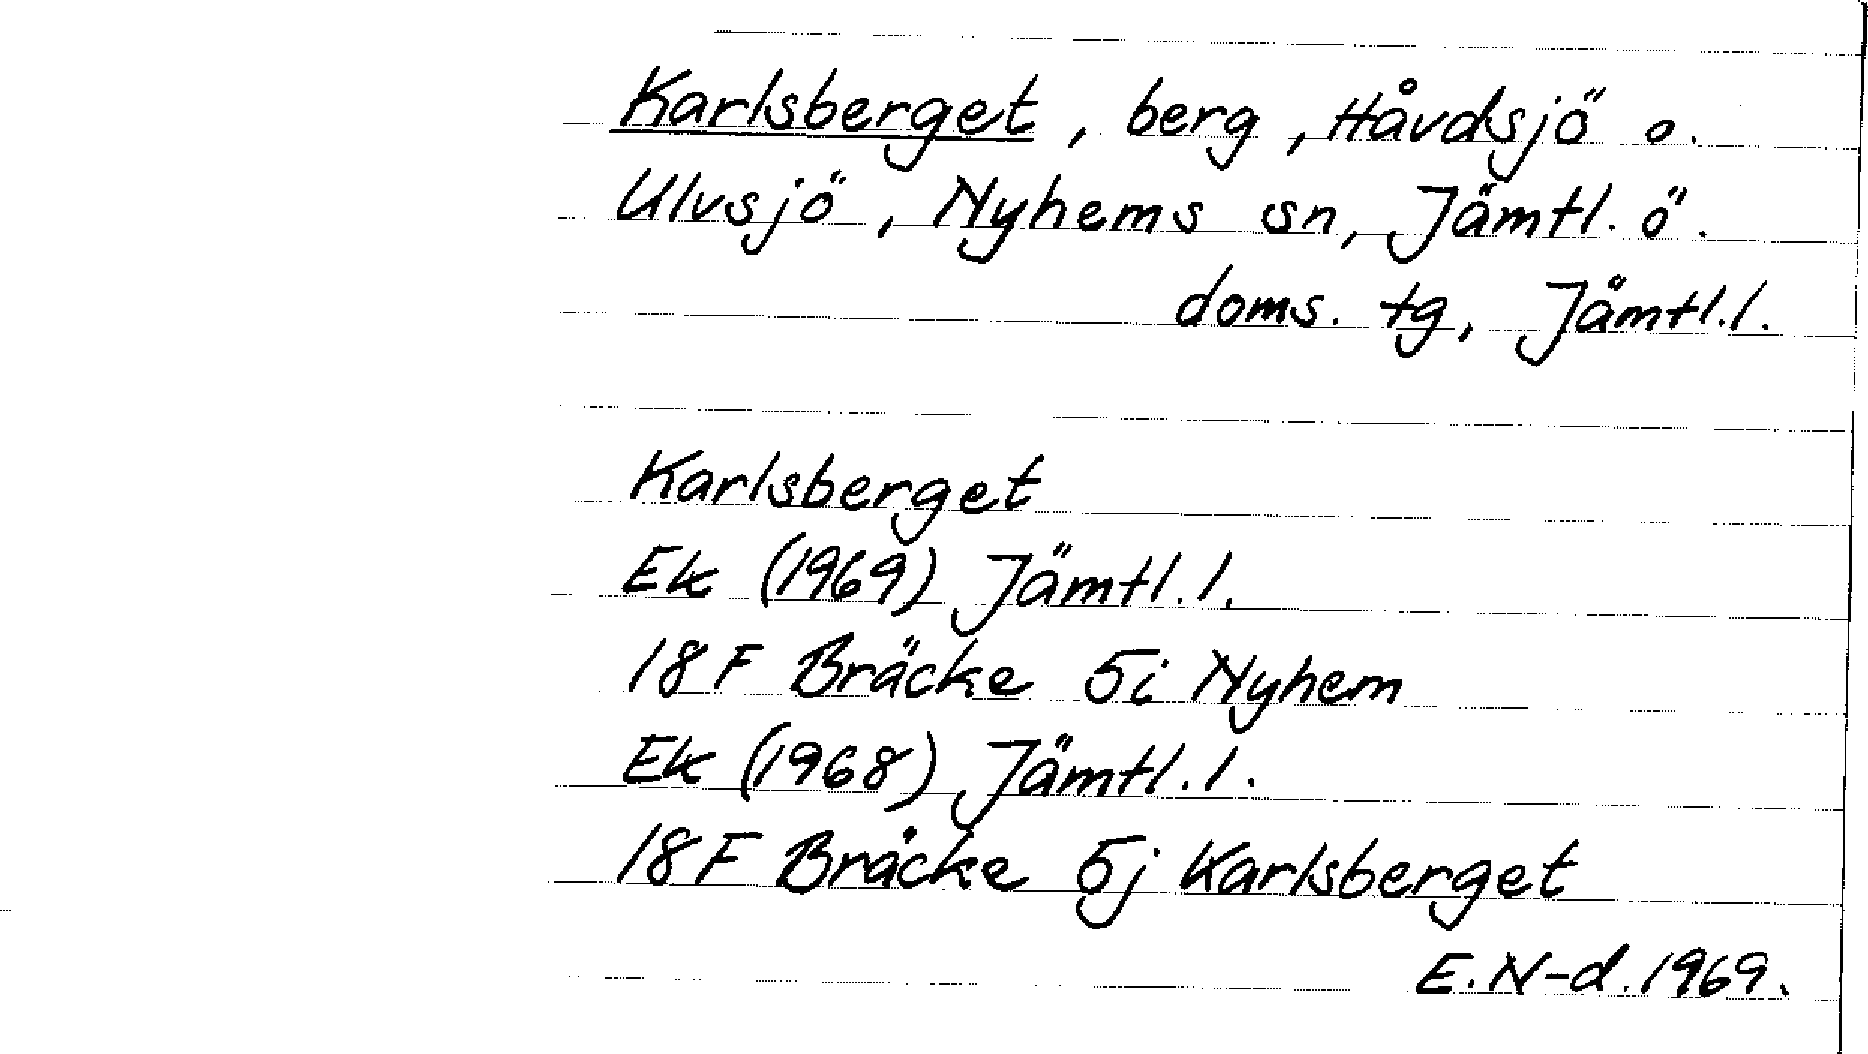 Karlsberget, berg, Håvdsjö o.
Ulvsjö, Nyhems sn, Jämtl. ö.
doms. tg, Jämtl.l.
Karlsberget
Ek (1969) Jämtl.l.
18 F Bräcke 5i Nyhem
Ek (1968) Jämtl.l.
18 F Bräcke 5j Karlsberget
E.N-d.1969.